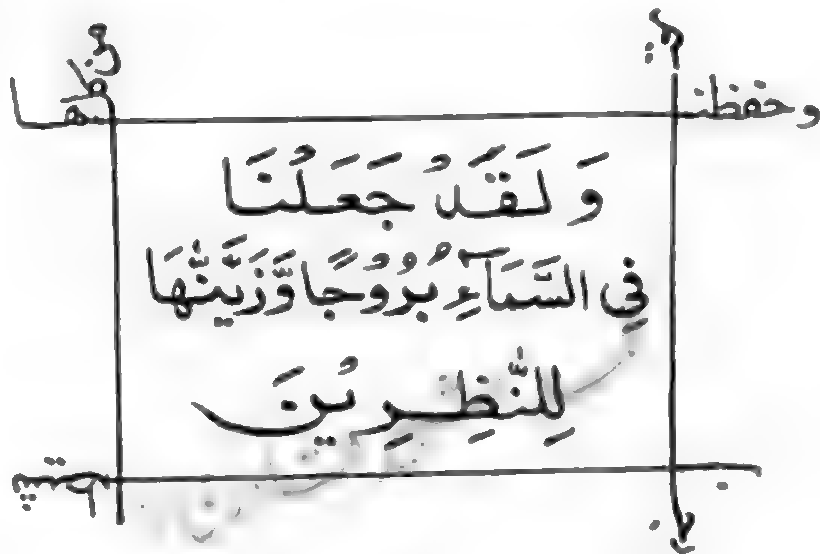 وحفظنها
وَلَقَدْ جَعَلْنَا
فِي السَّمَآءِ بُرُوْجًا وَّزَيَّنّٰهَا
لِلنّٰظِرِيْنَ